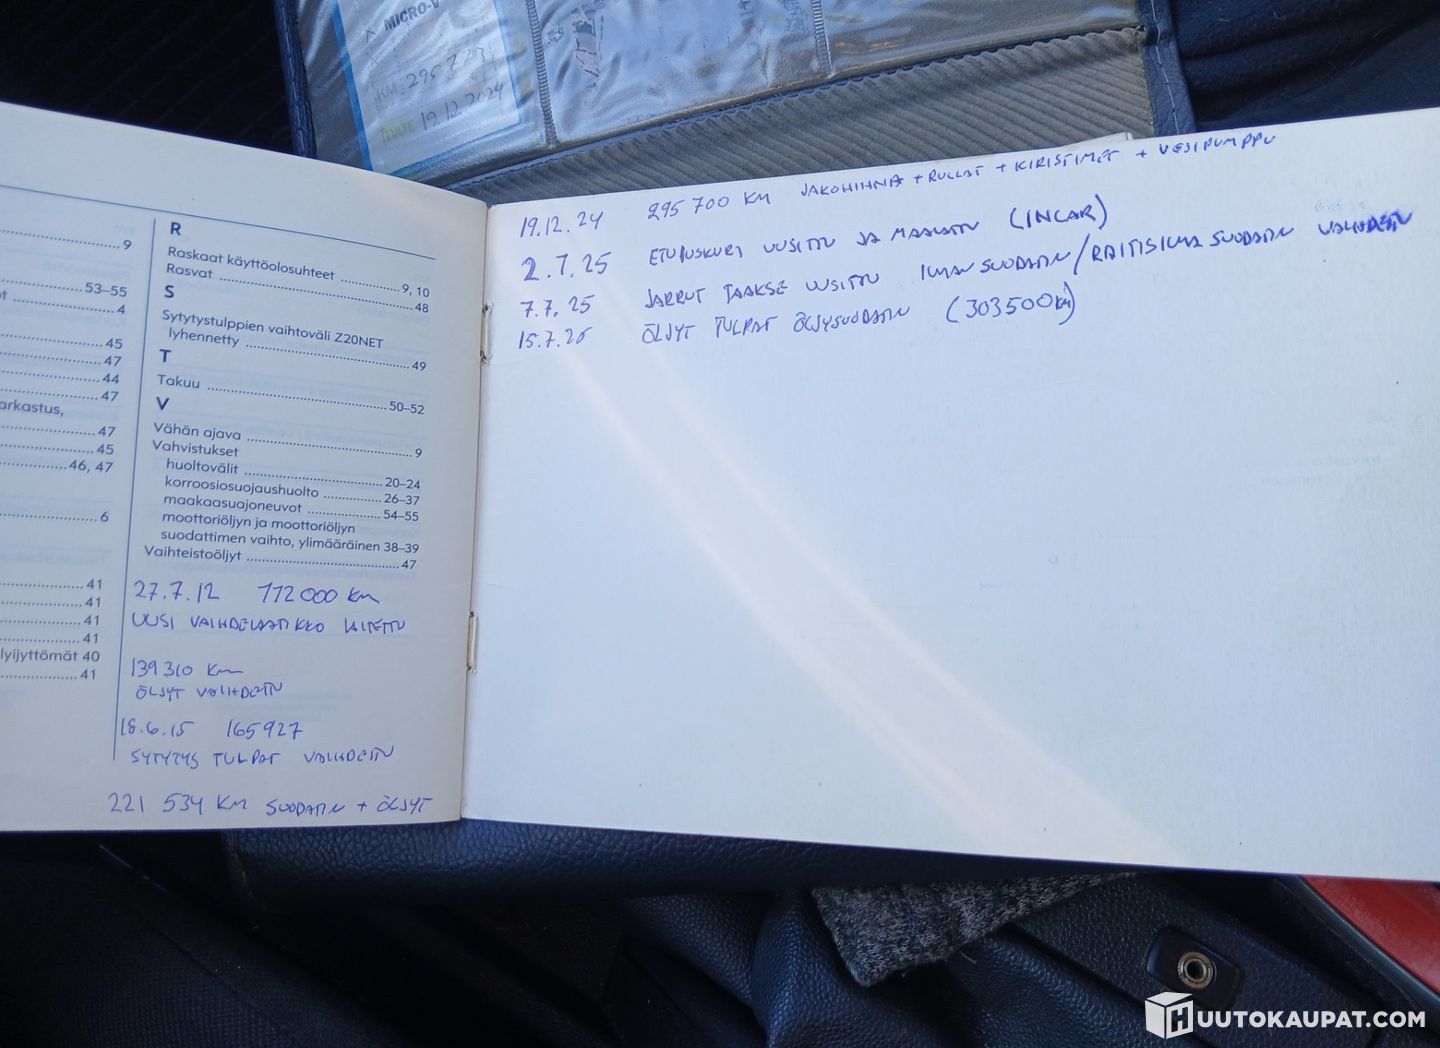 MICRO-V
KM: 295 7
DATE 19.12.2024
9
53–55
4
45
47
44
47
arkastus,
47
45
46, 47
6
41
41
41
41
lyijyttömät 40
41
R
Raskaat käyttöolosuhteet 9, 10
Rasvat 48
S
Sytytystulppien vaihtoväli Z20NET
lyhennetty 49
T
Takuu 50–52
V
Vähän ajava 9
Vahvistukset
huoltovälit 20–24
korroosiosuojaushuolto 26–37
maakaasuajoneuvot 54–55
moottoriöljyn ja moottoriöljyn
suodattimen vaihto, ylimääräinen 38–39
Vaihteistoöljyt 47
27.7.12 112 000 Km
UUSI VAIHDELAATIKKO LAITETTU
139 310 Km
ÖLJYT VAIHDETTU
18.6.15 165927
SYTYTYS TULPAT VAIHDETTU
221 534 KM SUODATIN + ÖLJYT
19.12.24 295 700 KM JAKOHIHNA + RULLAT + KIRISTIMET + VESIPUMPPU
2.7.25 ETUPUSKURI UUSITTU JA MAALATTU (INCAR)
7.7.25 JARRUT TAAKSE UUSITTU ILMANSUODATIN/RAITISILMASUODATIN VAIHDETTU
15.7.25 ÖLJYT TULPAT ÖLJYSUODATIN (303500KM)
HUUTOKAUPAT.COM